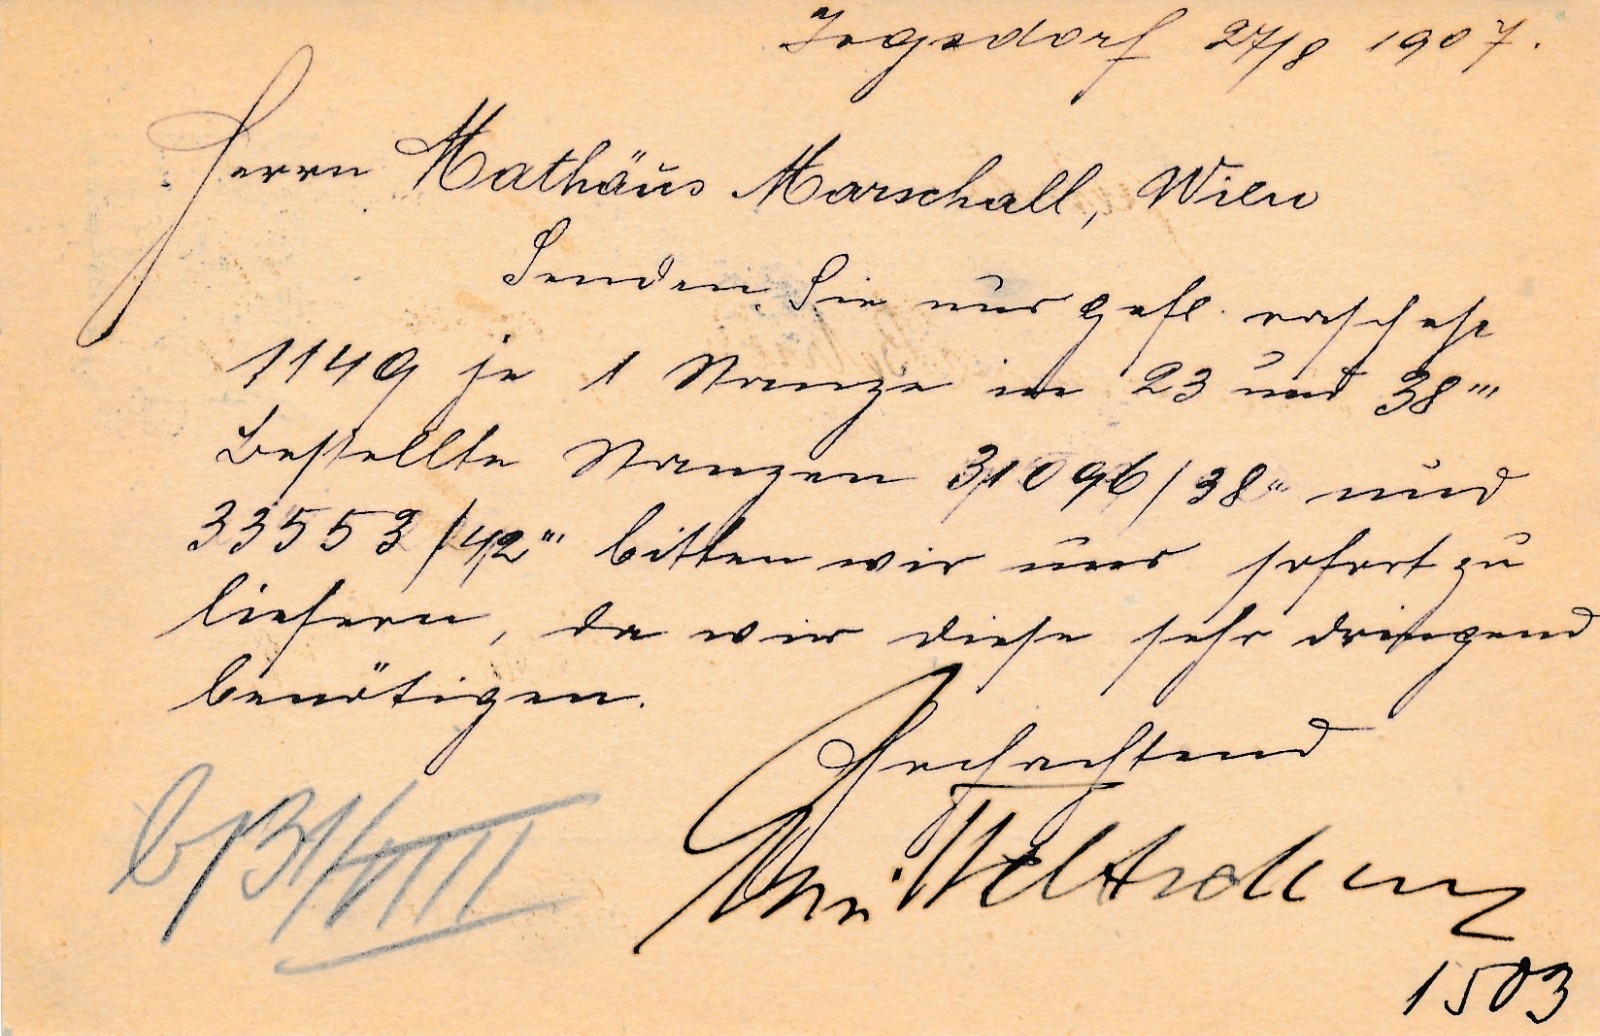 Jogsdorf 27/8 1907.
Herrn Mathäus Marschall, Wien
Senden Sie uns gefl. raschest
1149 je 1 Stanze in 23 und 38'''
Bestellte Stanzen 31096/38''' und
33553/42''' bitten wir uns sofort zu
liefern, da wir diese sehr dringend
benötigen.
Hochachtend
1503